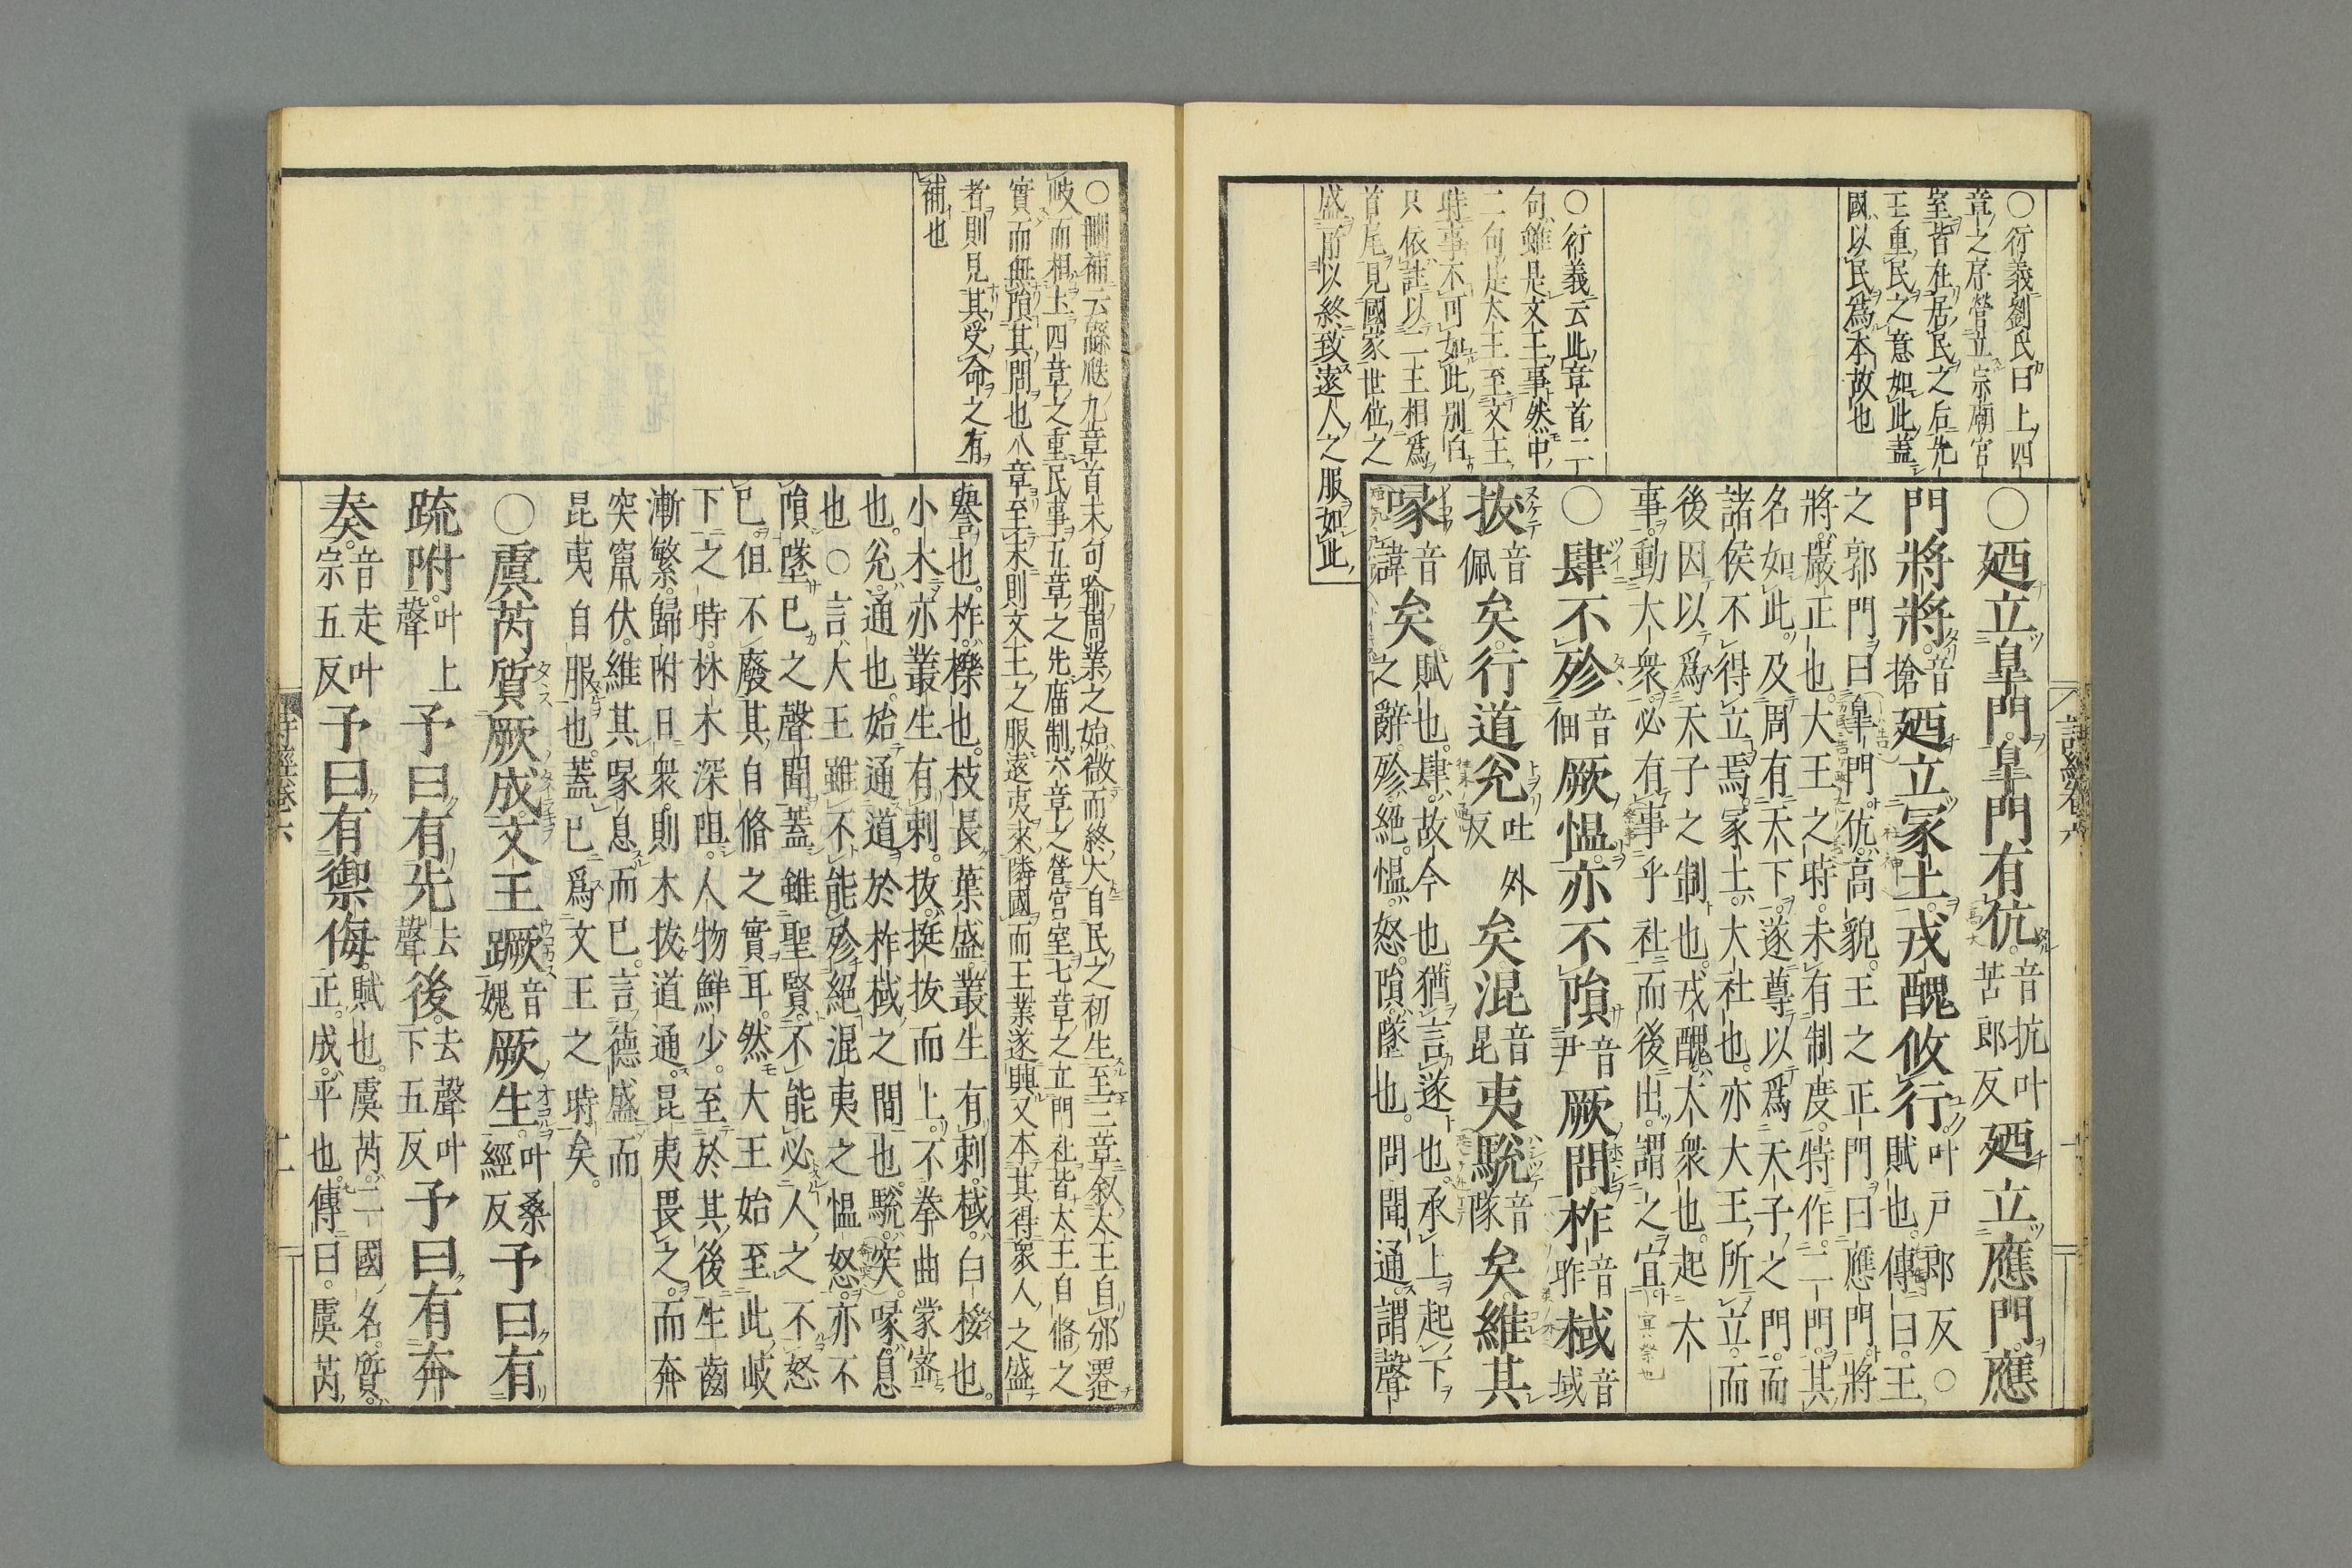 ○衍義劉氏曰上四
章之序營立宗廟宮
室皆在居民之后先
王重民之意如此蓋
國以民爲本故也
○衍義云此章首二
句雖是文王事然中
二句是太王至文王
時事不可如此別白
只依註以二王相爲
首尾見國家世位之
盛所以終致遠人之服如此
詩經卷六
○廼立皐門皐門有伉音抗叶苦郎反廼立應門應
門將將音搶廼立冢土戎醜攸行叶戸郎反○賦也傳曰王
之郭門曰皐門伉高貌王之正門曰應門將
將嚴正也大王之時未有制度特作二門其
名如此及周有天下遂尊以爲天子之門而
諸侯不得立焉冢土大社也亦大王所立而
後因以爲天子之制也戎醜大衆也起大
事動大衆必有事乎社而後出謂之宜
○肆不殄音佃厥慍亦不隕音尹厥問柞音昨棫音域
拔音佩矣行道兊吐外反矣混音昆夷駾音隊矣維其
喙音諱矣賦也肆故今也猶言遂也承上起下之辭殄絕慍怒隕墜也問聞通謂聲
○刪補云緜瓞九章首末句喩周業之始微而終大自民之初生至三章叙太王自邠遷
岐而相土四章之重民事五章之先庿制六章之營宮室七章之立門社皆太王自脩之
實而無隕其問也八章至末則文王之服遠夷來隣國而王業遂興又本其得衆人之盛
者則見其受命之有
補也
譽也柞櫟也枝長葉盛叢生有刺棫白桵也
小木亦叢生有刺拔挺拔而上不拳曲蒙密
也兊通也始通道於柞棫之間也駾突喙息
也○言大王雖不能殄絕混夷之慍怒亦不
隕墜已之聲聞蓋雖聖賢不能必人之不怒
已但不廢其自脩之實耳然大王始至此岐
下之時林木深阻人物鮮少至於其後生齒
漸繁歸附日衆則木拔道通昆夷畏之而奔
突竄伏維其喙息而已言德盛而
昆夷自服也蓋已爲文王之時矣
○虞芮質厥成文王蹶音媿厥生叶桑經反予曰有
疏附叶上聲予曰有先去聲後去聲叶下五反予曰有奔
奏音走叶宗五反予曰有禦侮賦也虞芮二國名質正成平也傳曰虞芮
詩經卷六